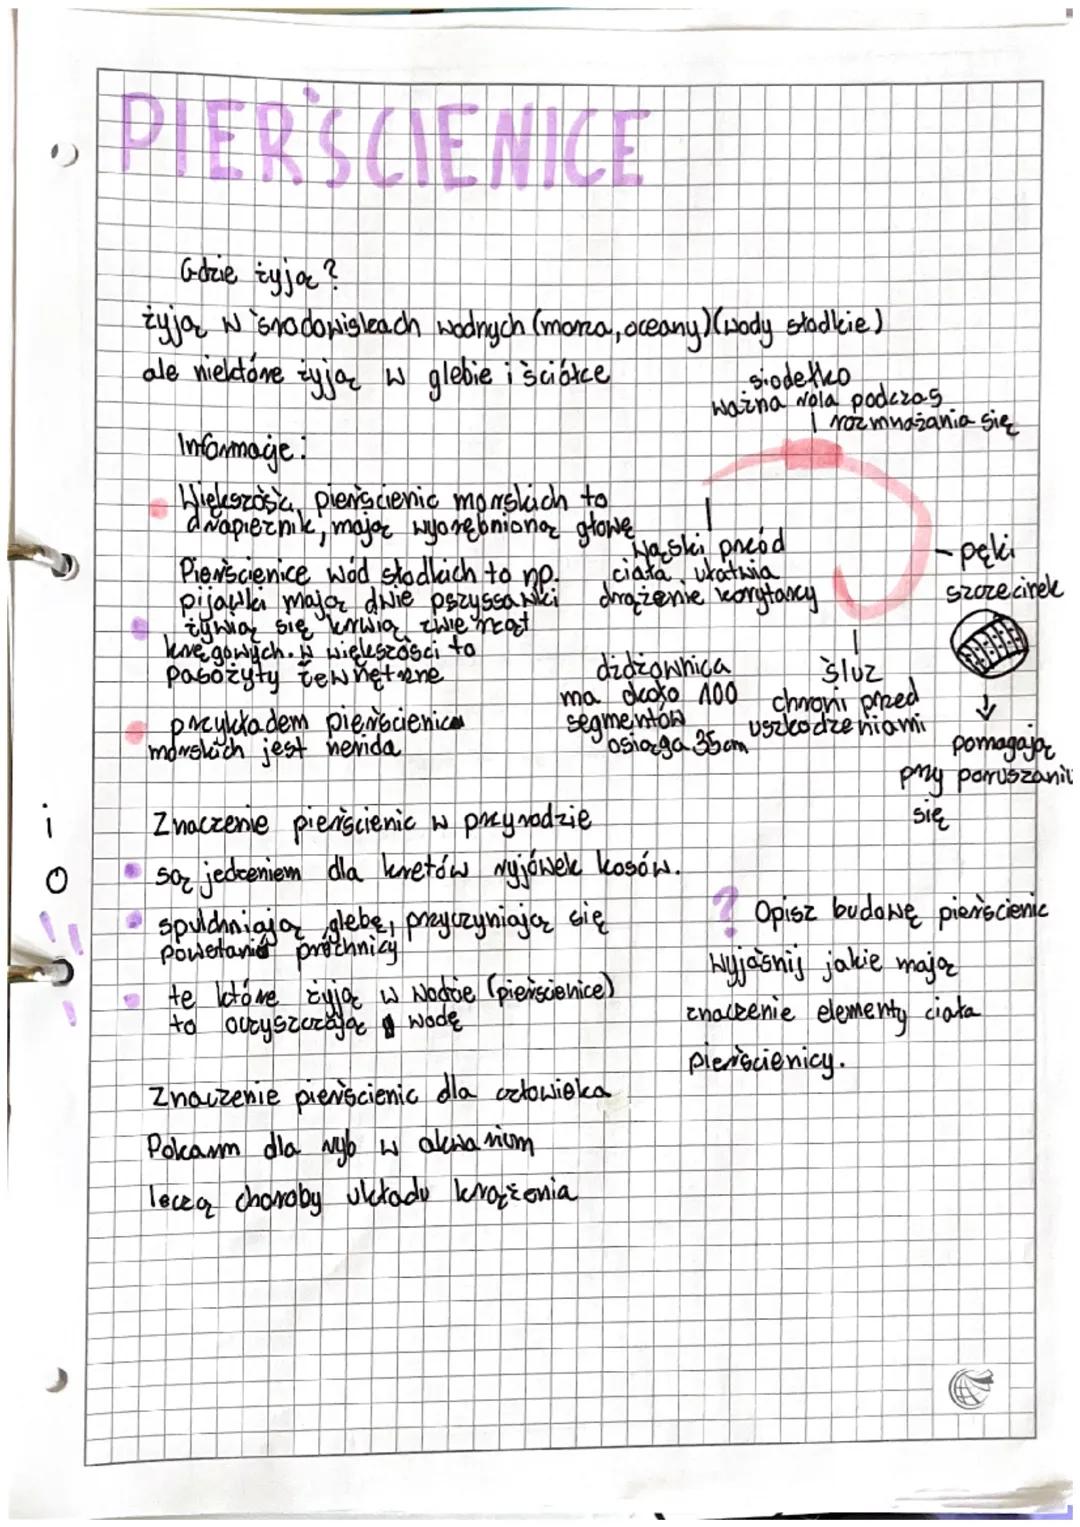 PIERŚCIENICE
Gdzie żyją?
żyją w środowiskach wodnych (morza, oceany) (wody słodkie)
ale niektóre żyją w glebie i ściółce
siodełko
ważna rola podczas
rozmnażania się
Informacje:
Większość pierścienic morskich to
drapieżnik, mają wyorębnioną głowę
Pierścienice wód słodkich to np.
pijawki mają dwie pszyssawki
żywią się krwią zwierząt
kręgowych. W większości to
pasożyty zewnętrzne
przykładem pierścienic
morskich jest nereida
wąski przód
ciała ułatwia
drążenie korytarzy
pęki
szczecinek
dżdżownica
ma około 100
segmentów
osiąga 35cm
śluz
chroni przed
uszkodzeniami
pomagają
przy poruszaniu
się
Znaczenie pierścienic w przyrodzie
są jedzeniem dla kretów ryjówek kosów.
spulchniają glebę, przyczyniają się
powstania próchnicy
te które żyją w wodzie (pierścienice)
to oczyszczają wodę
? Opisz budowę pierścienic
Wyjaśnij jakie mają
znaczenie elementy ciała
pierścienicy.
Znaczenie pierścienic dla człowieka
Pokarm dla ryb w akwarium
leczą choroby układu krążenia
i
o
!!
!